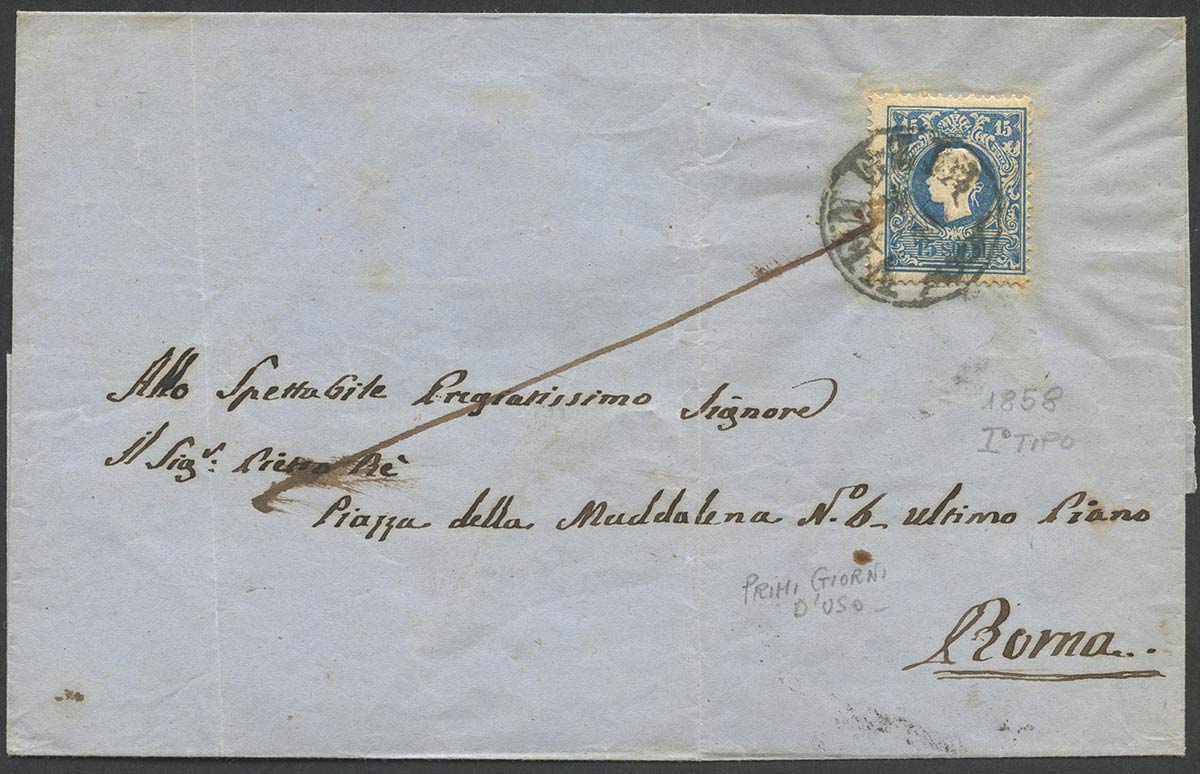 15 15
15 SOLDI
Allo Spettabile Pregiatissimo Signore
Il Sigr: Pietro Rè
Piazza della Maddalena N.o 6 ultimo Piano
1858
Io TIPO
PRIMI GIORNI
D'USO
Roma